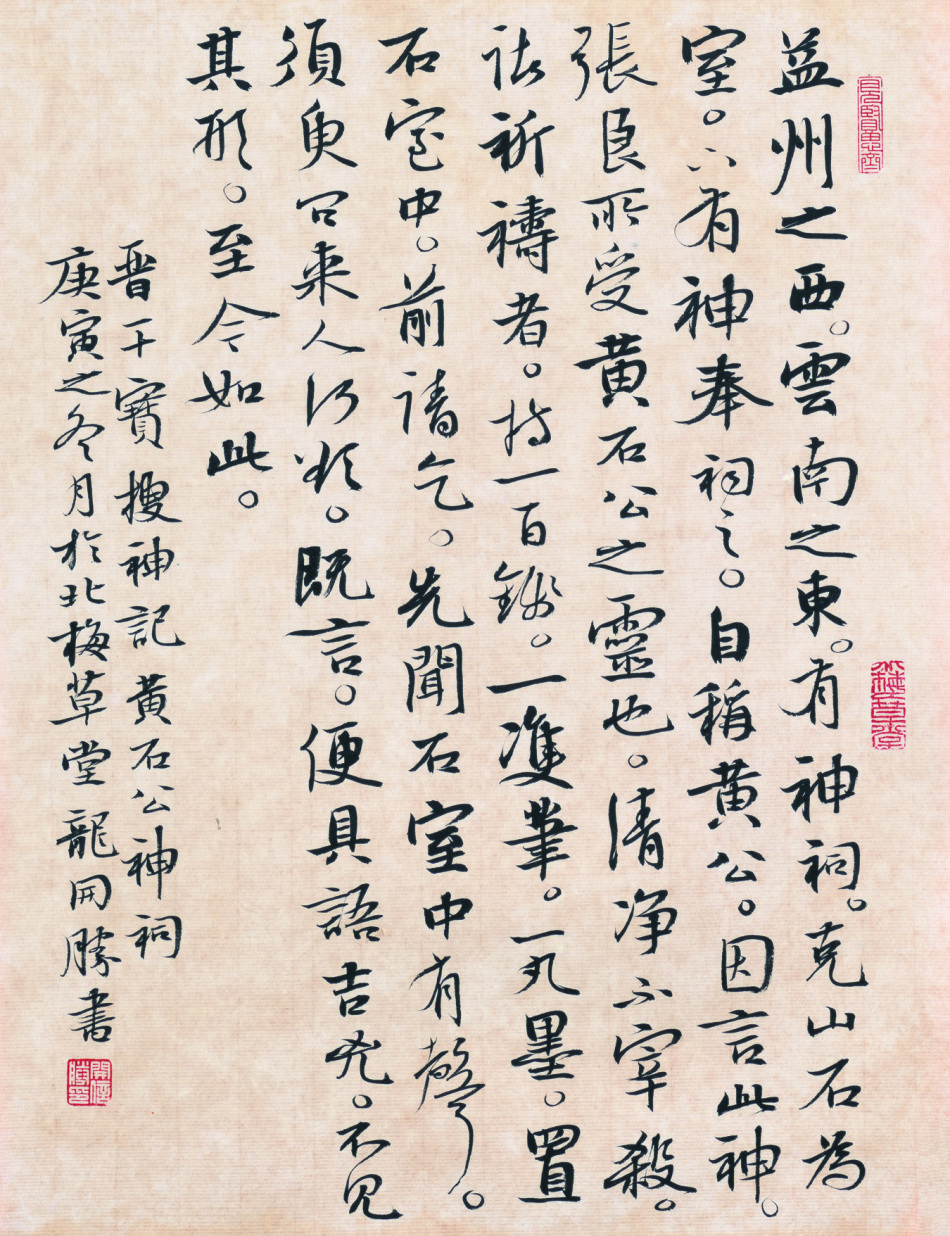 益州之西。雲南之東。有神祠。克山石為
室。下有神奉祠之。自稱黄公。因言此神。
張良所受黄石公之靈也。清净不宰殺。
諸祈禱者。持一百錢。一雙筆。一丸墨。置
石室中。前請乞。先聞石室中有聲。
須臾問来人何欲。既言。便具語吉凶。不見
其形。至今如此。
晋干寶搜神記黄石公神祠
庚寅之冬月於北梅草堂龍開勝書